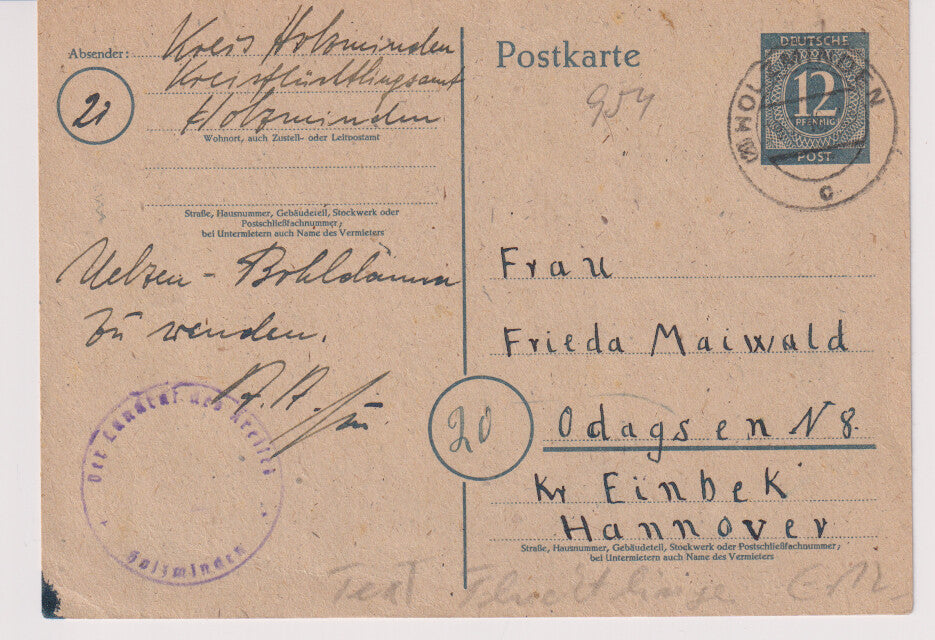 Absender: Kreis Holzminden
Kreisflüchtlingsamt
21
Holzminden
Wohnort, auch Zustell- oder Leitpostamt
Straße, Hausnummer, Gebäudeteil, Stockwerk oder
Postschließfachnummer;
bei Untermietern auch Name des Vermieters
Uelzen - Bohldamm
zu wenden.
Der Landrat des Kreises
Holzminden
Postkarte
954
DEUTSCHE
12
PFENNIG
POST
HOLZMINDEN
c
Frau
Frieda Maiwald
20
Odagsen N 8.
Kr Einbek
Hannover
Straße, Hausnummer, Gebäudeteil, Stockwerk oder Postschließfachnummer;
bei Untermietern auch Name des Vermieters
Text Flüchtlinge